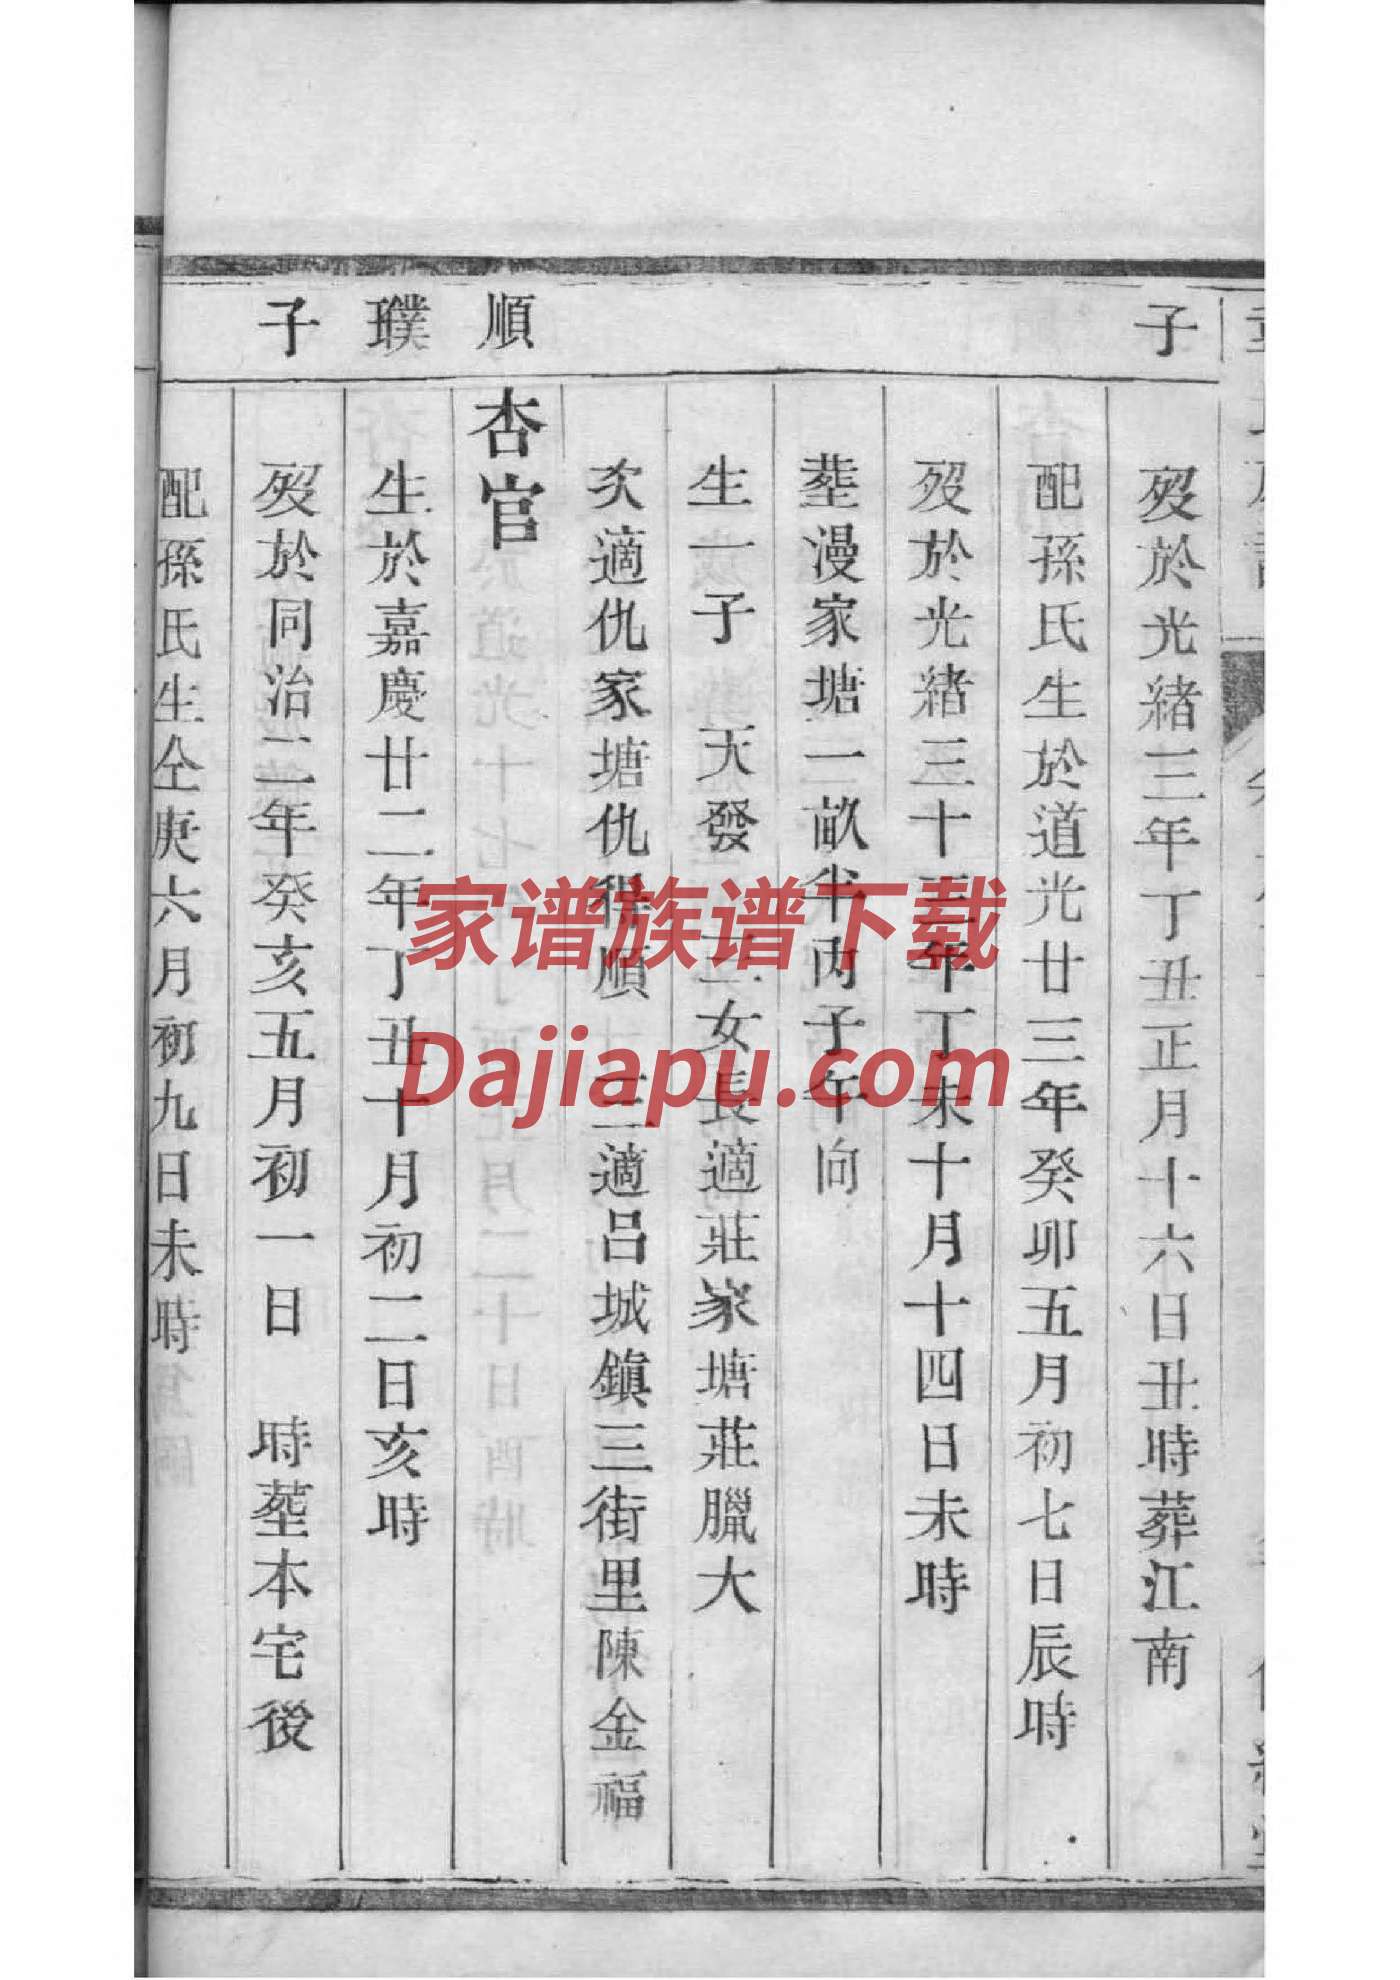 子
歿於光緒三年丁丑正月十六日丑時葬江南
配孫氏生於道光廿三年癸卯五月初七日辰時
歿於光緒三十三年丁未十月十四日未時
塟漫家塘一畝半丙子午向
生一子 天發 三女長適莊家塘莊臘大
次適仇家塘仇程順 三適吕城鎮三街里陳金福
順 杏官
璞 生於嘉慶廿二年丁丑十月初二日亥時
子 歿於同治二年癸亥五月初一日 時塟本宅後
配孫氏生仝庚六月初九日未時
家谱族谱下载
Dajiapu.com